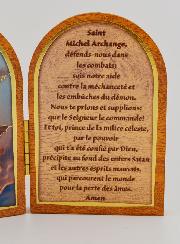 Saint
Michel Archange,
défends-nous dans
les combats;
sois notre aide
contre la méchanceté et
les embûches du démon.
Nous te prions et supplions:
que le Seigneur le commande!
Et toi, prince de la milice céleste,
par le pouvoir
qui t'a été confié par Dieu,
précipite au fond des enfers Satan
et les autres esprits mauvais,
qui parcourent le monde
pour la perte des âmes.
Amen